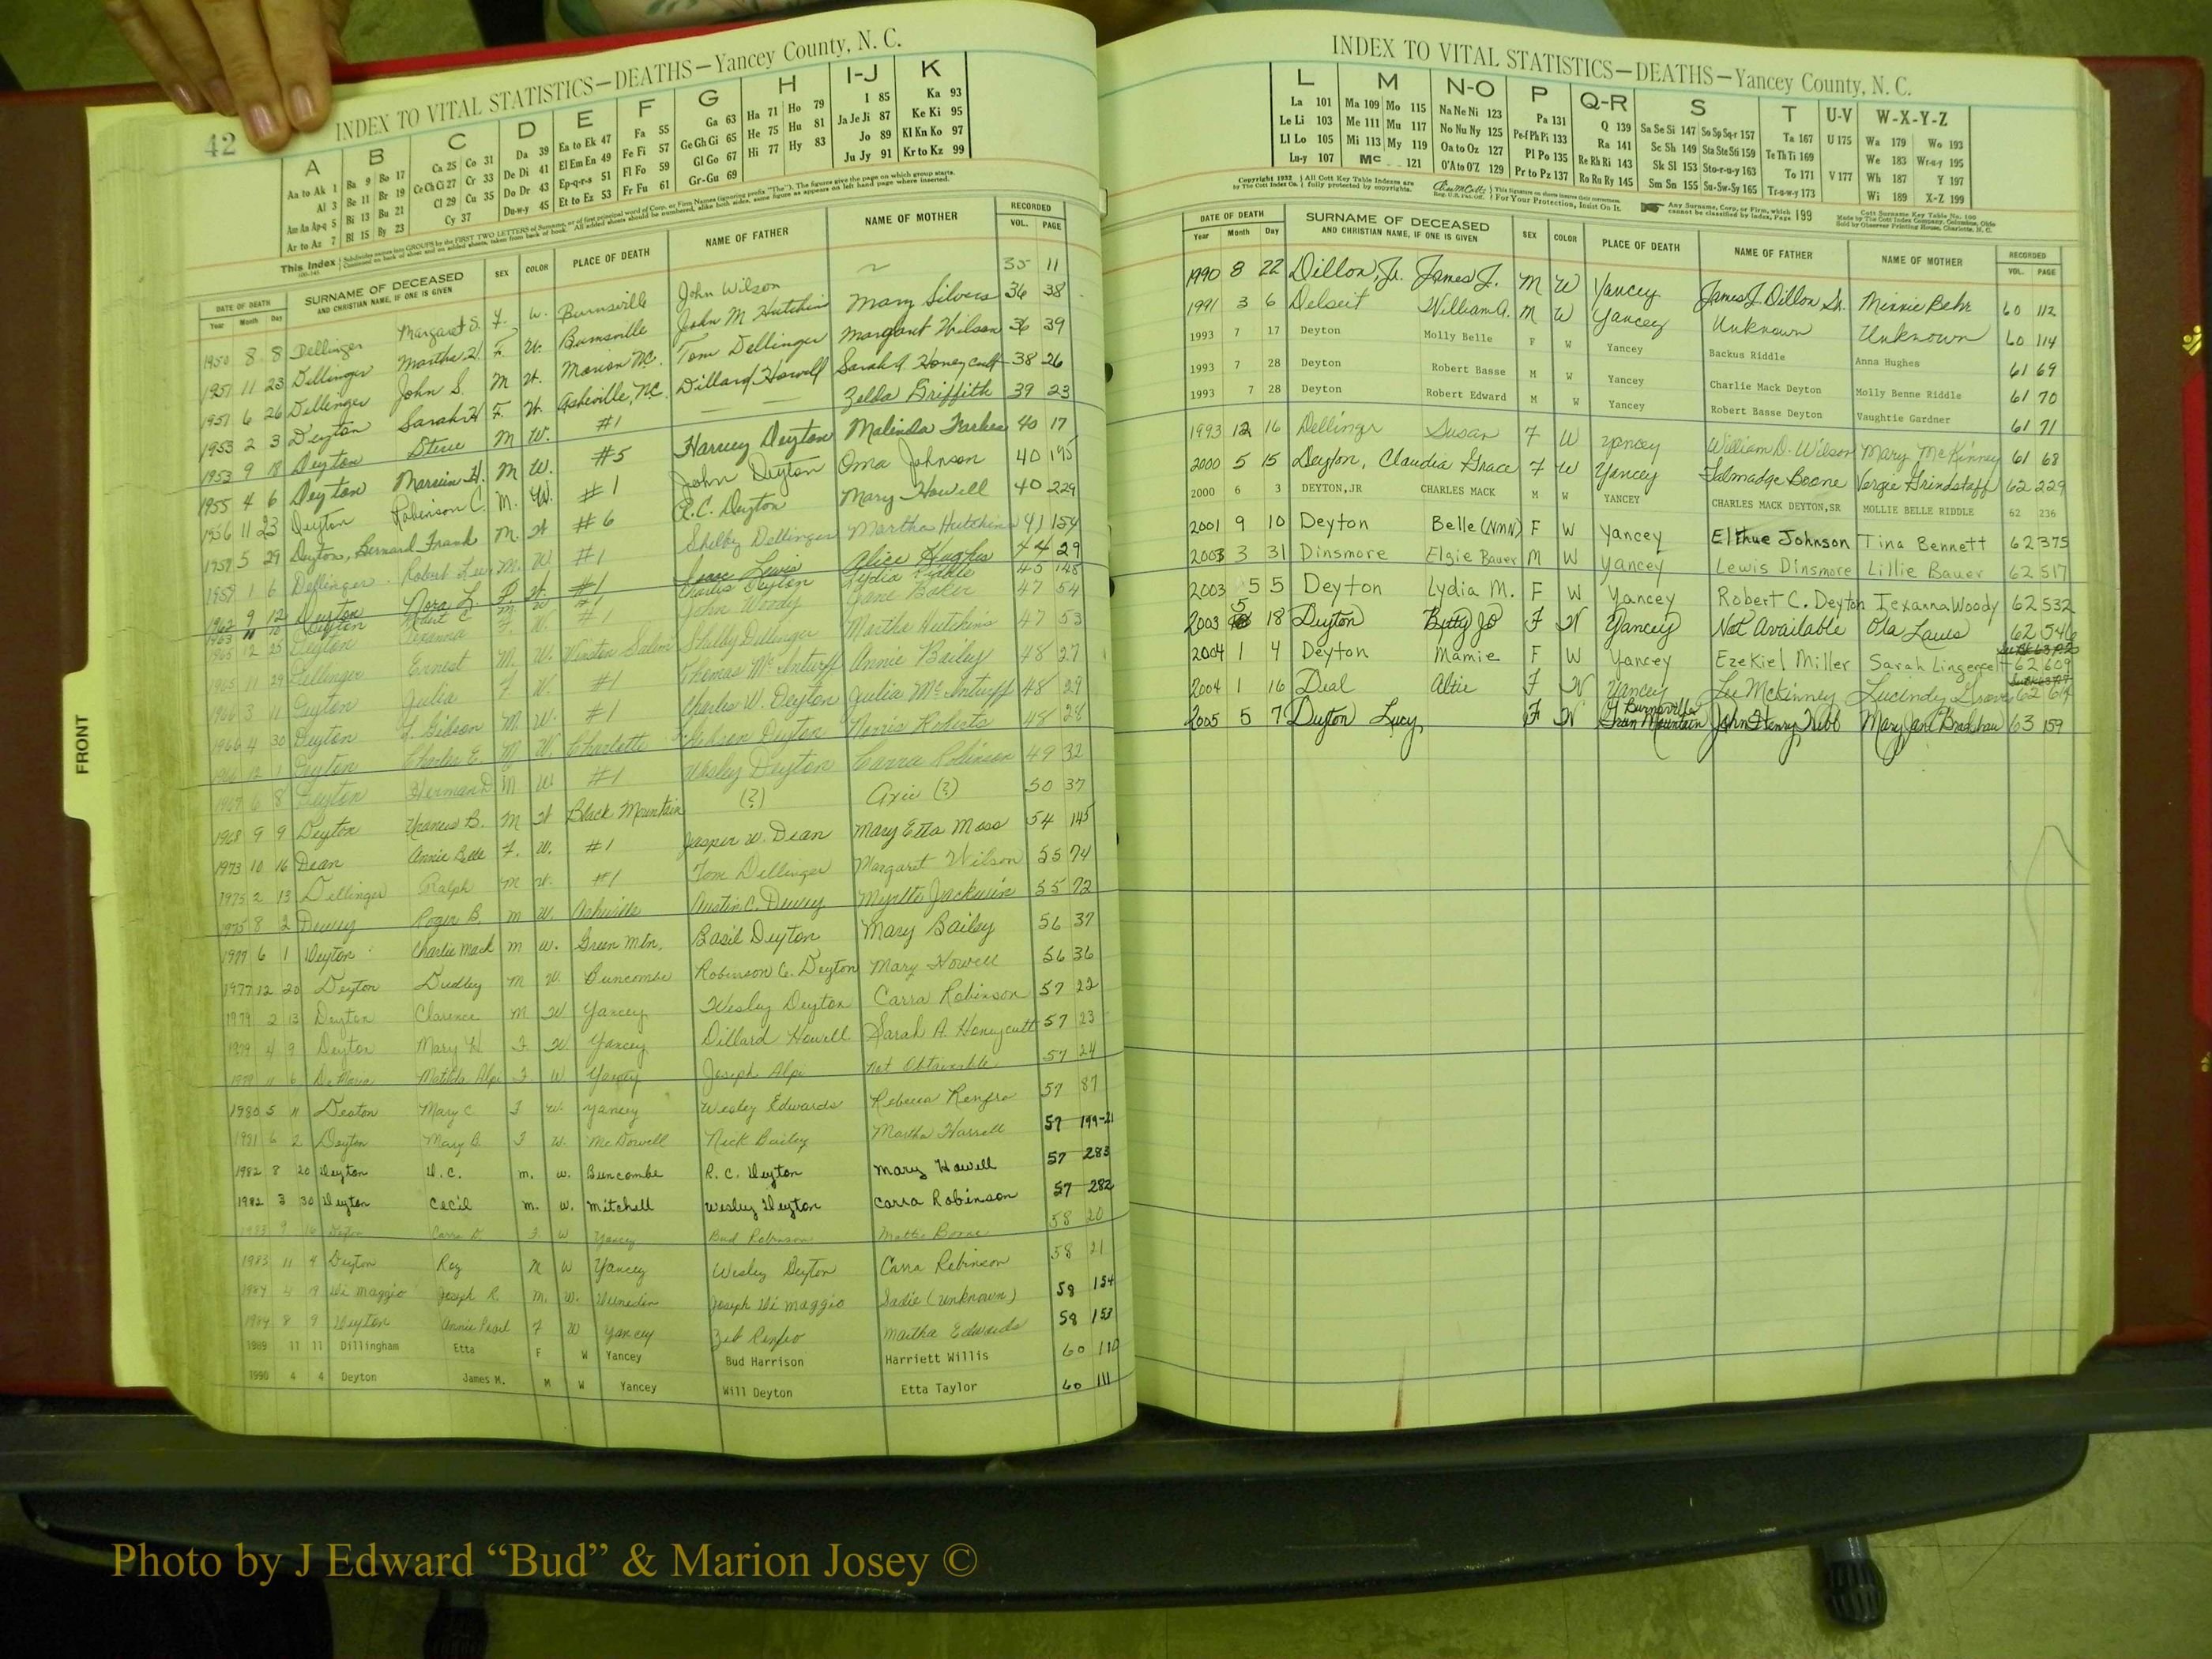 42
INDEX TO VITAL STATISTICS—DEATHS—Yancey County, N. C.
A B C D E F G H I-J K
Aa to Ak 1 Ba 9 Bo 17 Ca 25 Co 31 Da 39 Ea to Ek 47 Fa 55 Ga 63 Ha 71 Ho 79 I 85 Ka 93
Al 3 Be 11 Br 19 Ce Ch Ci 27 Cr 33 De Di 41 El Em En 49 Fe Fi 57 Ge Gh Gi 65 He 75 Hu 81 Ja Je Ji 87 Ke Ki 95
Am An Ap-q 5 Bi 13 Bu 21 Cl 29 Cu 35 Do Dr 43 Ep-q-r-s 51 Fl Fo 59 Gl Go 67 Hi 77 Hy 83 Jo 89 Kl Kn Ko 97
Ar to Az 7 Bl 15 By 23 Cy 37 Du-w-y 45 Et to Ez 53 Fr Fu 61 Gr-Gu 69 Ju Jy 91 Kr to Kz 99
This Index
DATE OF DEATH SURNAME OF DECEASED SEX COLOR PLACE OF DEATH NAME OF FATHER NAME OF MOTHER RECORDED
Year Month Day AND CHRISTIAN NAME, IF ONE IS GIVEN VOL. PAGE
1950 8 8 Dellinger Margaret S. F. W. Burnsville John Wilson 35 11
1951 11 23 Dellinger Martha H. F. W. Burnsville John M Hutchin Mary Silvers 36 38
1951 6 26 Dellinger John S. M W. Marion NC. Tom Dellinger Margaret Wilson 36 39
1953 2 3 Deyton Sarah H F. W. Asheville, NC. Dillard Howell Sarah A. Honeycutt 38 26
1953 9 18 Deyton Steve M W. #1 Zelda Griffith 39 23
1955 4 6 Deyton H. M W. #5 Harvey Deyton Malinda 40 17
1956 11 23 Deyton Robinson C. M. W. #1 John Deyton Oma Johnson 40 195
1957 5 29 Deyton, Bernard Frank M. W #6 R.C. Deyton Mary Howell 40 229
1959 1 6 Dellinger Robert Lee M. W #1 Shelby Dellinger Martha Hutchins 41 154
1962 9 12 Deyton Nora L. F W. #1 Lewis Alice Hughes 44 29
Deyton C M W #1 Charles Deyton Lydia Riddle 45 148
1965 12 25 Deyton Texanna F. W. # John Woody Jane Baker 47 54
1965 11 29 Dellinger Ernest M. W. Winston Salem Shelby Dellinger Martha Hutchins 47 53
1966 3 11 Deyton Julia F W. #1 Thomas McInturff Annie Bailey 48 27
1966 4 30 Deyton F. Gibson M. W. #1 Charles W. Deyton Julia McInturff 48 29
1966 12 1 Deyton Charles E. M W. Charlotte Gibson Deyton Norris Roberts 48 28
1967 6 8 Deyton Herman D M W #1 Wesley Deyton Carra Robinson 49 32
1968 9 9 Deyton B. M W Black Mountain (?) (?) 50 37
1973 10 16 Dean Annie Belle F. W. #1 Jasper W. Dean Mary Etta Moss 54 145
1975 2 13 Dellinger Ralph M W. #1 Tom Dellinger Margaret Wilson 55 74
1975 8 2 Dewey Roger B. M W. Asheville Austin C. Dewey Myrtle 55 72
1977 6 1 Deyton Charlie Mack m w. Green Mtn. Basil Deyton Mary Bailey 56 37
1977 12 20 Deyton Dudley M W. Buncombe Robinson C. Deyton Mary Howell 56 36
1979 2 13 Deyton Clarence M W Yancey Wesley Deyton Carra Robinson 57 22
1979 4 9 Deyton Mary H F. W. Yancey Dillard Howell Sarah A. Honeycutt 57 23
1979 11 6 Matilda Alpi F W Yancey Joseph Alpi Not Obtainable 57 24
1980 5 11 Deaton Mary C F W. Yancey Wesley Edwards Rebecca Renfro 57 87
1981 6 2 Deyton Mary B. F W. McDowell Nick Bailey Martha Harrell 57 199-21
1982 8 20 Deyton D.C. m. w. Buncombe R. C. Deyton Mary Howell 57 283
1982 3 30 Deyton Cecil m. w. Mitchell Wesley Deyton Carra Robinson 57 282
1983 9 16 Deyton Carra D F. W Yancey Bud Robinson Mattie Boone 58 20
1983 11 4 Deyton Roy M W Yancey Wesley Deyton Carra Robinson 58 21
1984 4 19 Di maggio Joseph R. M. W. Dunedin Joseph Di maggio Sadie (unknown) 58 154
1984 8 9 Deyton Annie Pearl F W Yancey Zeb Renfro Martha Edwards 58 153
1989 11 11 Dillingham Etta F W Yancey Bud Harrison Harriett Willis 60 110
1990 4 4 Deyton James M. M W Yancey Will Deyton Etta Taylor 60 111
FRONT
INDEX TO VITAL STATISTICS—DEATHS—Yancey County, N. C.
L M N-O P Q-R S T U-V W-X-Y-Z
La 101 Ma 109 Mo 115 Na Ne Ni 123 Pa 131 Q 139 Sa Se Si 147 So Sp Sq-r 157 Ta 167 U 175 Wa 179 Wo 193
Le Li 103 Me 111 Mu 117 No Nu Ny 125 Pe-f Ph Pi 133 Ra 141 Sc Sh 149 Sta Ste Sti 159 Te Th Ti 169 We 183 Wr-u-y 195
Ll Lo 105 Mi 113 My 119 Oa to Oz 127 Pl Po 135 Re Rh Ri 143 Sk Sl 153 Sto-r-u-y 163 To 171 V 177 Wh 187 Y 197
Lu-y 107 Mc 121 O'A to O'Z 129 Pr to Pz 137 Ro Ru Ry 145 Sm Sn 155 Su-Sw-Sy 165 Tr-u-w-y 173 Wi 189 X-Z 199
Copyright 1932 All Cott Key Table Indexes are fully protected by copyrights. For Your Protection, Insist On It. Any Surname, Corp. or Firm, which cannot be classified by index, Page 199
DATE OF DEATH SURNAME OF DECEASED SEX COLOR PLACE OF DEATH NAME OF FATHER NAME OF MOTHER RECORDED
Year Month Day AND CHRISTIAN NAME, IF ONE IS GIVEN VOL. PAGE
1990 8 22 Dillon, Jr. James J. M W Yancey James J. Dillon Sr. Minnie Behr 60 112
1991 3 6 Delseit William A. M W Yancey Unknown Unknown 60 114
1993 7 17 Deyton Molly Belle F W Yancey Backus Riddle Anna Hughes 61 69
1993 7 28 Deyton Robert Basse M W Yancey Charlie Mack Deyton Molly Benne Riddle 61 70
1993 7 28 Deyton Robert Edward M W Yancey Robert Basse Deyton Vaughtie Gardner 61 71
1993 12 16 Dellinger Susan F W Yancey William D. Wilson Mary McKinney 61 68
2000 5 15 Deyton, Claudia Grace F W Yancey Talmadge Boone Vergie Grindstaff 62 229
2000 6 3 DEYTON,JR CHARLES MACK M W YANCEY CHARLES MACK DEYTON,SR MOLLIE BELLE RIDDLE 62 236
2001 9 10 Deyton Belle (NMN) F W Yancey Elthue Johnson Tina Bennett 62 375
2003 3 31 Dinsmore Elgie Bauer M W Yancey Lewis Dinsmore Lillie Bauer 62 517
2003 5 5 Deyton Lydia M. F W Yancey Robert C. Deyton Texanna Woody 62 532
2003 5 18 Deyton Betty Jo F W Yancey Not Available Ola Laws 62 546
2004 1 4 Deyton Mamie F W Yancey Ezekiel Miller Sarah Lingerfelt 62 609
2004 1 16 Deal Altie F W Yancey Lee McKinney Lucindy 62 614
2005 5 7 Deyton Lucy F W Burnsville Green Mountain John Henry Webb Mary Jane Bradshaw 63 159
Photo by J Edward “Bud” & Marion Josey ©